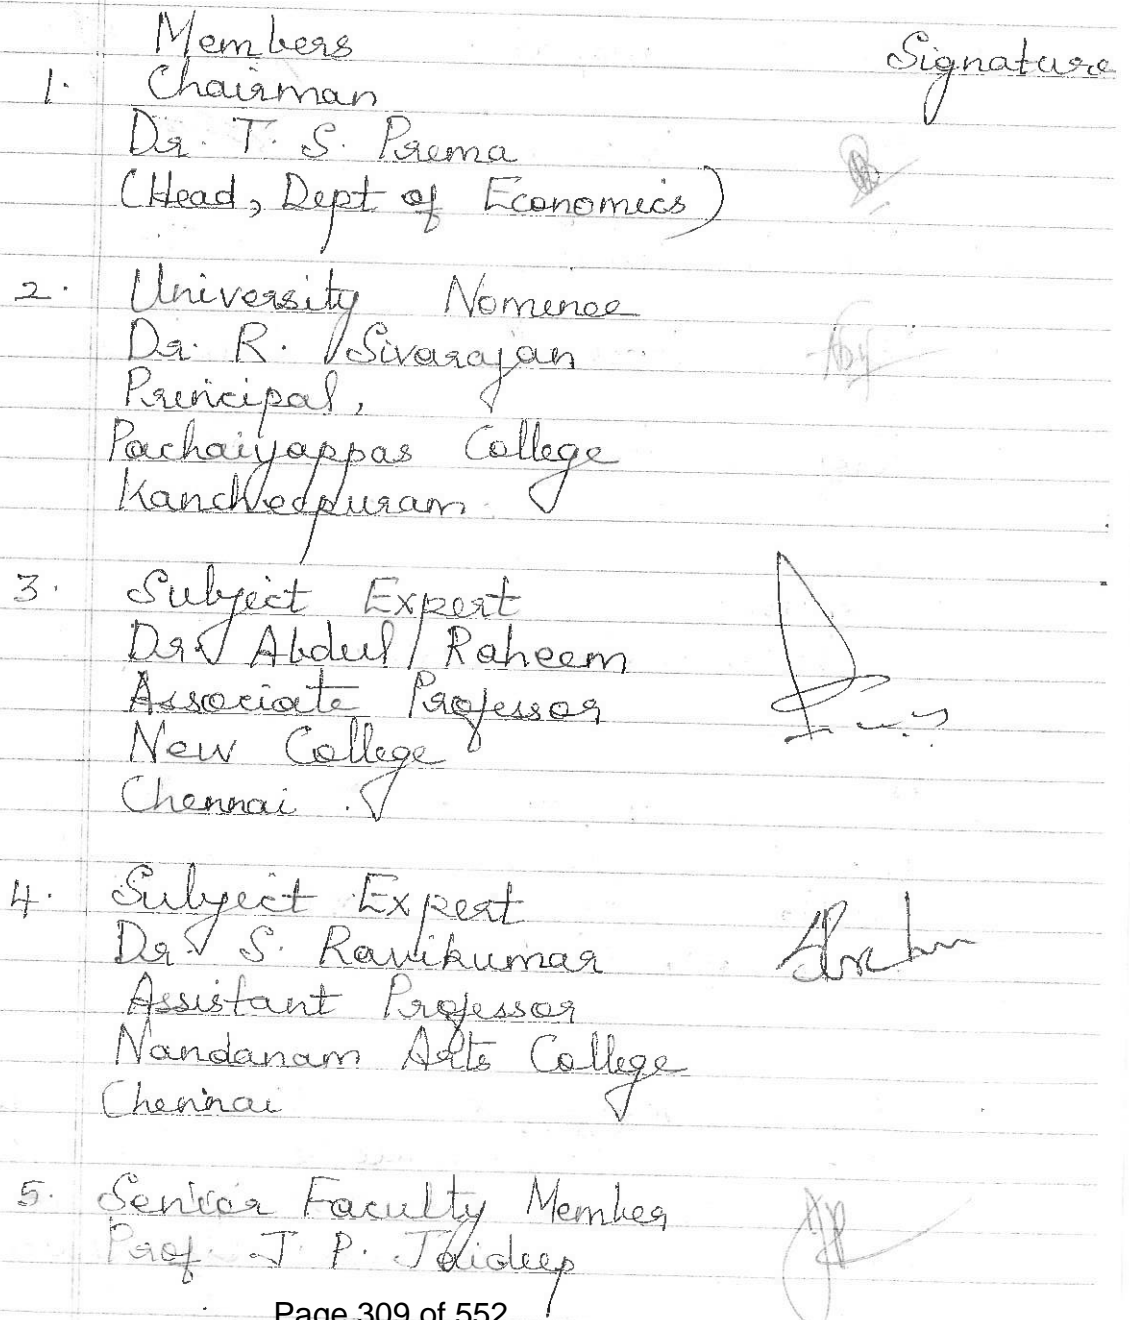 Members Signature
1. Chairman
Dr. T. S. Prema
(Head, Dept of Economics)
2. University Nominee
Dr. R. Sivarajan
Principal,
Pachaiyappas College
Kancheepuram.
3. Subject Expert
Dr. Abdul Raheem
Associate Professor
New College
Chennai.
4. Subject Expert
Dr. S. Ravikumar
Assistant Professor
Nandanam Arts College
Chennai
5. Senior Faculty Member
Prof. J. P. Jaideep
Page 309 of 552